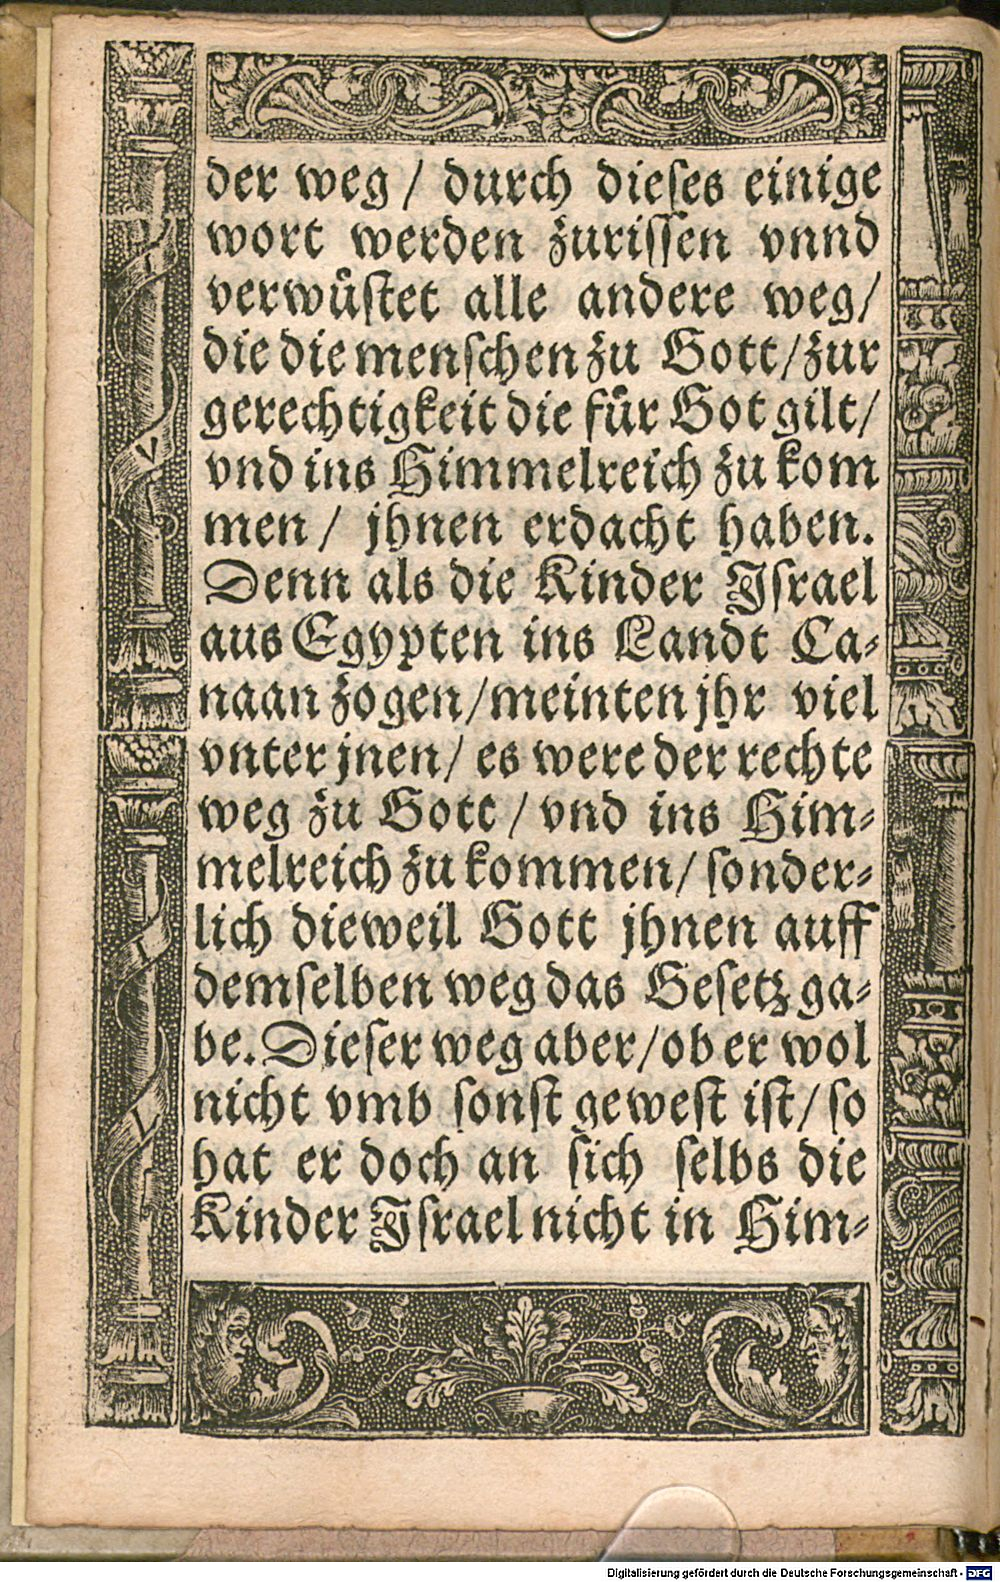 der weg / durch dieses einige
wort werden zurissen vnnd
verwuͤstet alle andere weg/
die die menschen zu Gott/zur
gerechtigkeit die fuͤr Got gilt/
vnd ins Himmelreich zu kom
men/ jhnen erdacht haben.
Denn als die Kinder Jsrael
aus Egypten ins Landt Ca-
naan zogen/meinten jhr viel
vnter jnen/ es were der rechte
weg zu Gott / vnd ins Him-
melreich zu kommen/ sonder-
lich dieweil Gott jhnen auff
demselben weg das Gesetz ga-
be. Dieser weg aber/ob er wol
nicht vmb sonst gewest ist/ so
hat er doch an sich selbs die
Kinder Jsrael nicht in Him-
Digitalisierung gefördert durch die Deutsche Forschungsgemeinschaft - DFG